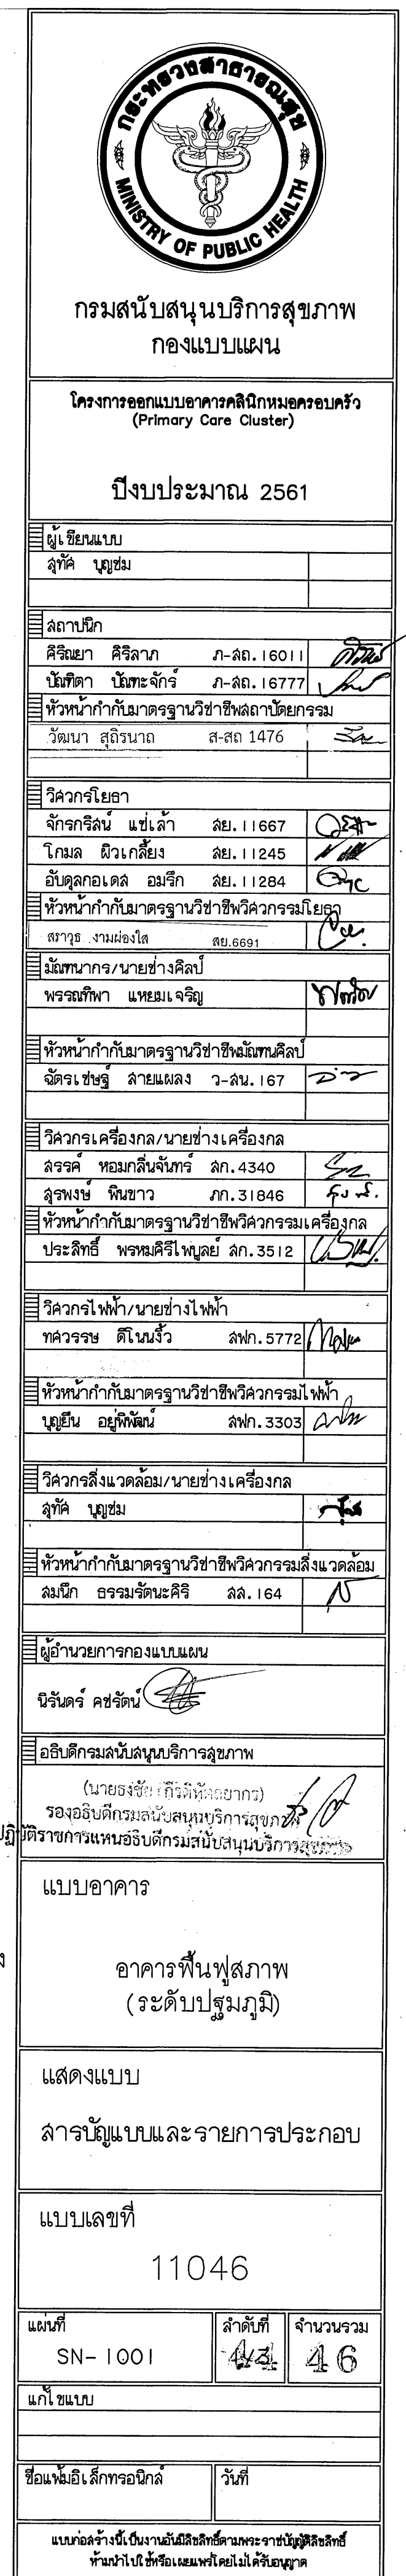 กระทรวงสาธารณสุข
MINISTRY OF PUBLIC HEALTH
กรมสนับสนุนบริการสุขภาพ
กองแบบแผน
โครงการออกแบบอาคารคลินิกหมอครอบครัว
(Primary Care Cluster)
ปีงบประมาณ 2561
ผู้เขียนแบบ
สุทัศ บุญช่ม
สถาปนิก
ศิริณยา ศิริลาภ ภ-สถ.16011
ปัณฑิตา ปัณฑะจักร์ ภ-สถ.16777
หัวหน้ากำกับมาตรฐานวิชาชีพสถาปัตยกรรม
วัฒนา สุถิรนาถ ส-สถ 1476
วิศวกรโยธา
จักรกริสน์ แซ่เล้า สย.11667
โกมล ผิวเกลี้ยง สย.11245
อับดุลกอเดส อมรึก สย.11284
หัวหน้ากำกับมาตรฐานวิชาชีพวิศวกรรมโยธา
สราวุธ งามผ่องใส สย.6691
มัณฑนากร/นายช่างศิลป์
พรรณทิพา แหยมเจริญ
หัวหน้ากำกับมาตรฐานวิชาชีพมัณฑนศิลป์
ฉัตรเชษฐ์ สายแผลง ว-สน.167
วิศวกรเครื่องกล/นายช่างเครื่องกล
สรรค์ หอมกลิ่นจันทร์ สก.4340
สุรพงษ์ พินขาว ภก.31846
หัวหน้ากำกับมาตรฐานวิชาชีพวิศวกรรมเครื่องกล
ประสิทธิ์ พรหมศิริไพบูลย์ สก.3512
วิศวกรไฟฟ้า/นายช่างไฟฟ้า
ทศวรรษ ดีโนนงิ้ว สฟก.5772
หัวหน้ากำกับมาตรฐานวิชาชีพวิศวกรรมไฟฟ้า
บุญยืน อยู่พิพัฒน์ สฟก.3303
วิศวกรสิ่งแวดล้อม/นายช่างเครื่องกล
สุทัศ บุญช่ม
หัวหน้ากำกับมาตรฐานวิชาชีพวิศวกรรมสิ่งแวดล้อม
สมนึก ธรรมรัตนะศิริ สส.164
ผู้อำนวยการกองแบบแผน
นิรันดร์ คชรัตน์
อธิบดีกรมสนับสนุนบริการสุขภาพ
(นายธงชัย กีรติหัตถยากร)
รองอธิบดีกรมสนับสนุนบริการสุขภาพ
ปฏิบัติราชการแทนอธิบดีกรมสนับสนุนบริการสุขภาพ
แบบอาคาร
อาคารฟื้นฟูสภาพ
(ระดับปฐมภูมิ)
แสดงแบบ
สารบัญแบบและรายการประกอบ
แบบเลขที่
11046
แผ่นที่ ลำดับที่ จำนวนรวม
SN-1001 46
แก้ไขแบบ
ชื่อแฟ้มอิเล็กทรอนิกส์ วันที่
แบบก่อสร้างนี้เป็นงานอันมีลิขสิทธิ์ตามพระราชบัญญัติลิขสิทธิ์
ห้ามนำไปใช้หรือเผยแพร่โดยไม่ได้รับอนุญาต